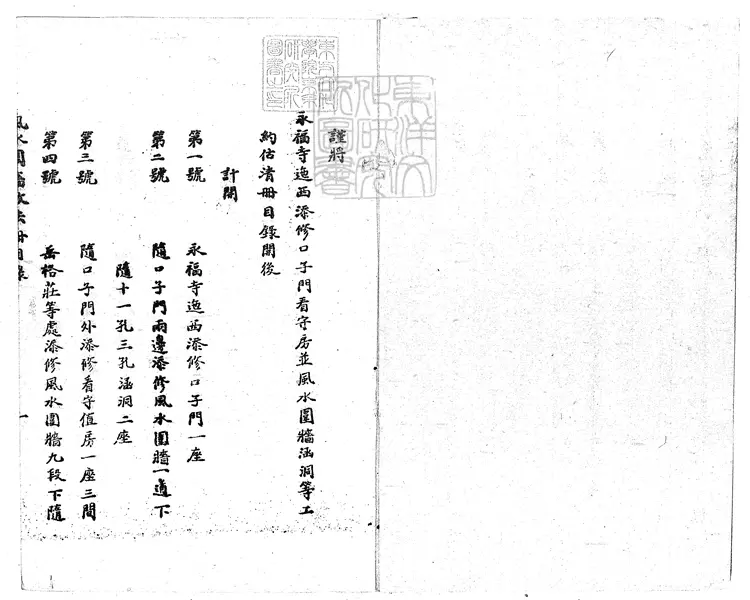 謹將
永福寺迤西添修口子門看守房並風水圍牆涵洞等工
約估清冊目錄開後
計開
第一號 永福寺迤西添修口子門一座
第二號 隨口子門兩邊添修風水圍牆一道下
隨十一孔三孔涵洞二座
第三號 隨口子門外添修看守值房一座三間
第四號 岳格莊等處添修風水圍牆九段下隨